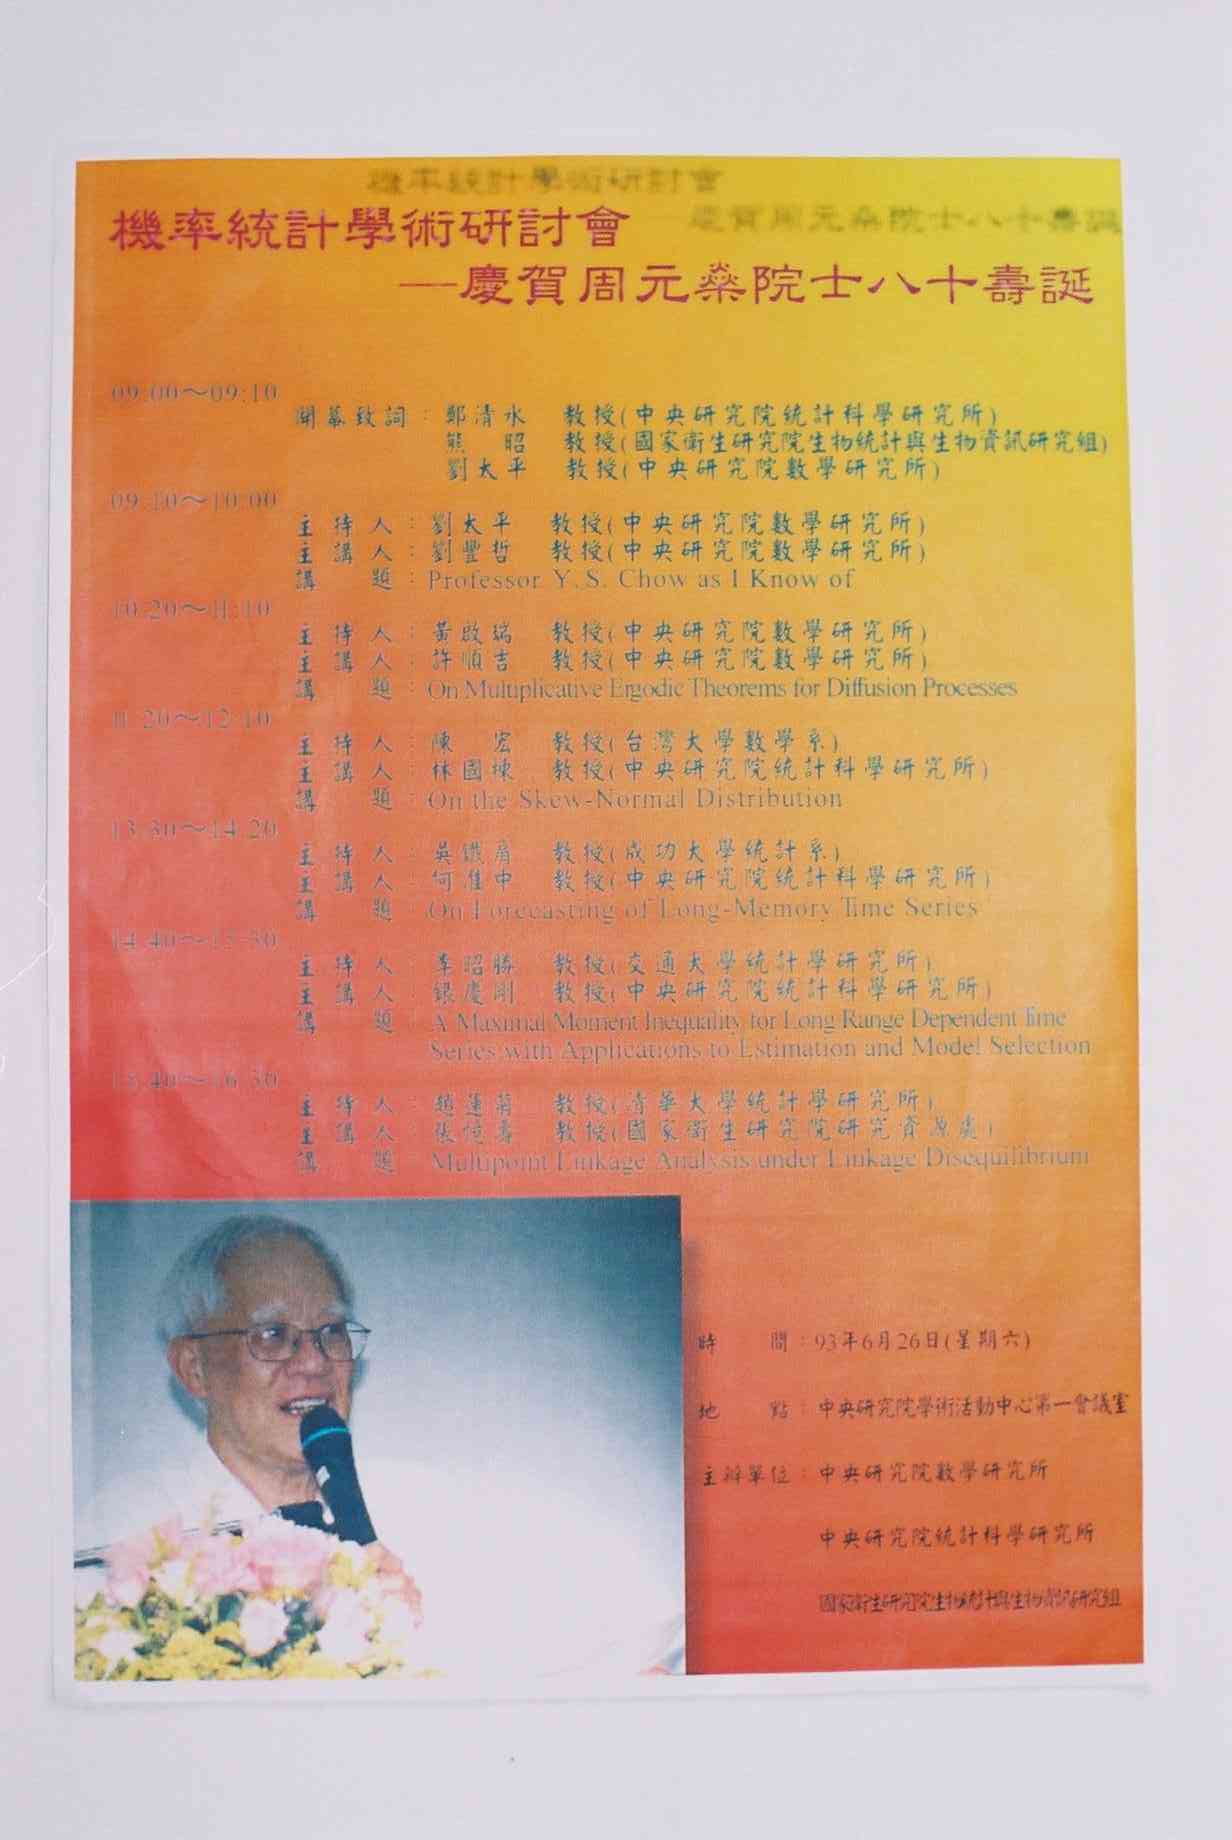 機率統計學術研討會
慶賀周元燊院士八十壽誕
機率統計學術研討會
—慶賀周元燊院士八十壽誕
09:00～09:10
開幕致詞：鄭清水 教授(中央研究院統計科學研究所)
熊 昭 教授(國家衛生研究院生物統計與生物資訊研究組)
劉太平 教授(中央研究院數學研究所)
09:10～10:00
主持人：劉太平 教授(中央研究院數學研究所)
主講人：劉豐哲 教授(中央研究院數學研究所)
講 題：Professor Y.S. Chow as I Know of
10:20～11:10
主持人：黃啟瑞 教授(中央研究院數學研究所)
主講人：許順吉 教授(中央研究院數學研究所)
講 題：On Multiplicative Ergodic Theorems for Diffusion Processes
11:20～12:10
主持人：陳 宏 教授(台灣大學數學系)
主講人：林國棟 教授(中央研究院統計科學研究所)
講 題：On the Skew-Normal Distribution
13:30～14:20
主持人：吳鐵肩 教授(成功大學統計系)
主講人：何淮中 教授(中央研究院統計科學研究所)
講 題：On Forecasting of Long-Memory Time Series
14:40～15:30
主持人：李昭勝 教授(交通大學統計學研究所)
主講人：銀慶剛 教授(中央研究院統計科學研究所)
講 題：A Maximal Moment Inequality for Long Range Dependent Time
Series with Applications to Estimation and Model Selection
15:40～16:30
主持人：趙蓮菊 教授(清華大學統計學研究所)
主講人：張憶壽 教授(國家衛生研究院研究資源處)
講 題：Multipoint Linkage Analysis under Linkage Disequilibrium
時 間：93年6月26日(星期六)
地 點：中央研究院學術活動中心第一會議室
主辦單位：中央研究院數學研究所
中央研究院統計科學研究所
國家衛生研究院生物統計與生物資訊研究組